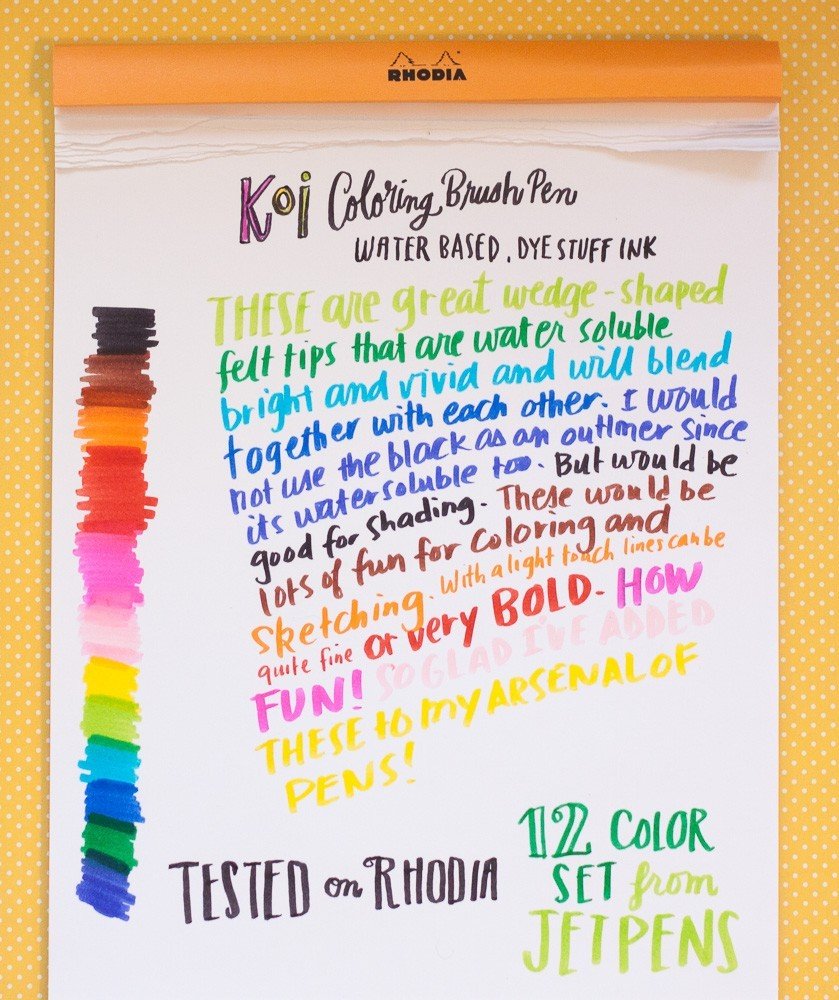 RHODIA
Koi Coloring Brush Pen
WATER BASED, DYE STUFF INK
THESE are great wedge-shaped
felt tips that are water soluble
bright and vivid and will blend
together with each other. I would
not use the black as an outliner since
its watersoluble too. But would be
good for shading. These would be
lots of fun for coloring and
sketching. With a light touch lines can be
quite fine or very BOLD. HOW
FUN! SO GLAD I'VE ADDED
THESE to my ARSENAL OF
PENS!
TESTED on RHODIA
12 COLOR
SET from
JETPENS